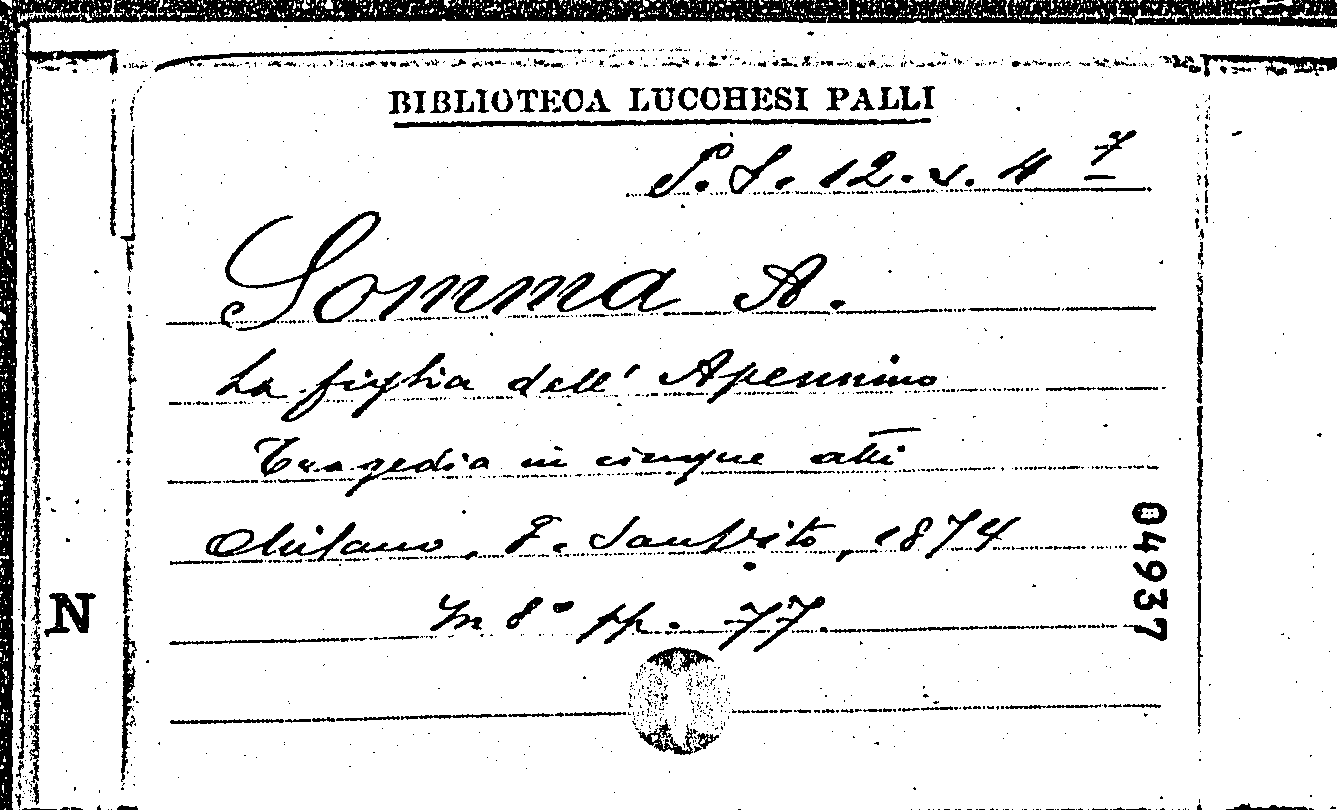 BIBLIOTECA LUCCHESI PALLI
P.S. 12. v. 4 7
Somma A.
La figlia dell' Apennino
Tragedia in cinque atti
Milano, F. Sanvito, 1874
In 8° pp. 77.
04937
N